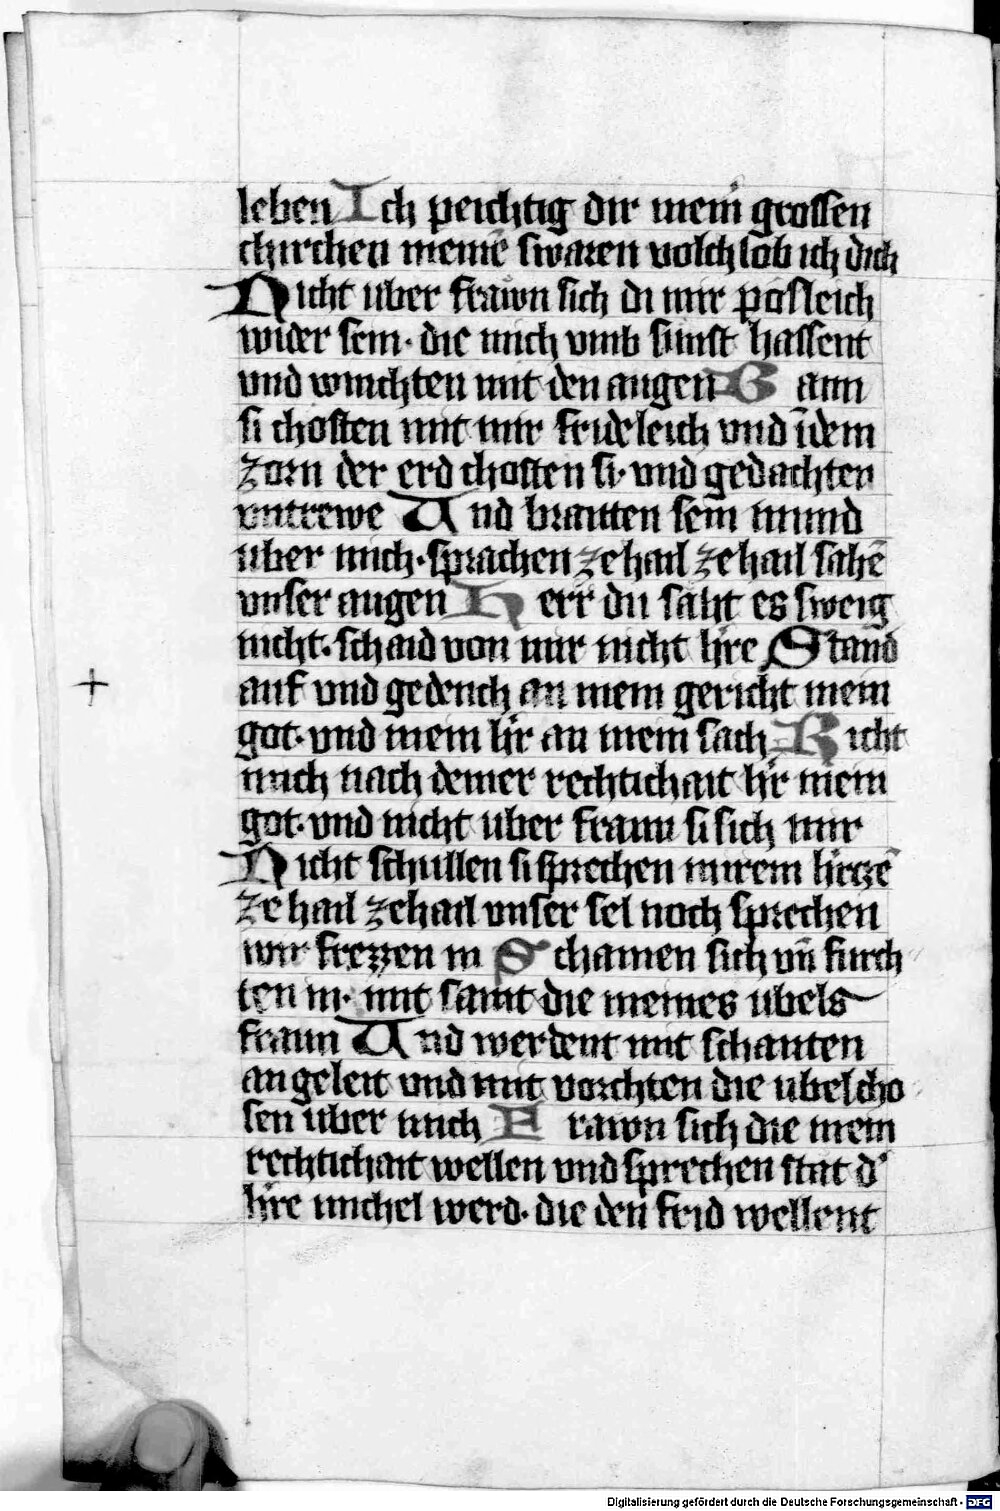 leben Ich peichtig dir mein grossen
chirchen meinē swaren volch lob ich dich
Nicht uber frawn sich di mir posleich
wider sein· die mich vmb sunst hassent
vnd winchten mit den augen Bann
si chosten mit mir frideleich vnd īdem
zorn der erd chosten si· vnd gedachten
vntrewe Und braitten sein mund
uber mich· sprachen ze hail ze hail sahē
vnser augen Herr du sāht es sweig
nicht· schaid von mir nicht hr̄e Stand
auf vnd gedench an mein gericht mein
got· vnd mein hr̄ an mein sach Richt
mich nach deiner rechtichait hr̄ mein
got· vnd nicht uber fraun si sich mir
Nicht schullen si sprechen in irem hērczē
ze hail ze hail vnser sel noch sprechen
wir frezzen in Schamen sich vn̄ furch
ten in· mit samt die meines ubels
fraun Und werdent mit schanten
an geleit vnd mit vorchten die ubel cho
sen uber mich Frawn sich die mein
rechtichait wellen vnd sprechen stat d'
hr̄re michel werd· die den frid wellent
Digitalisierung gefördert durch die Deutsche Forschungsgemeinschaft - DFG